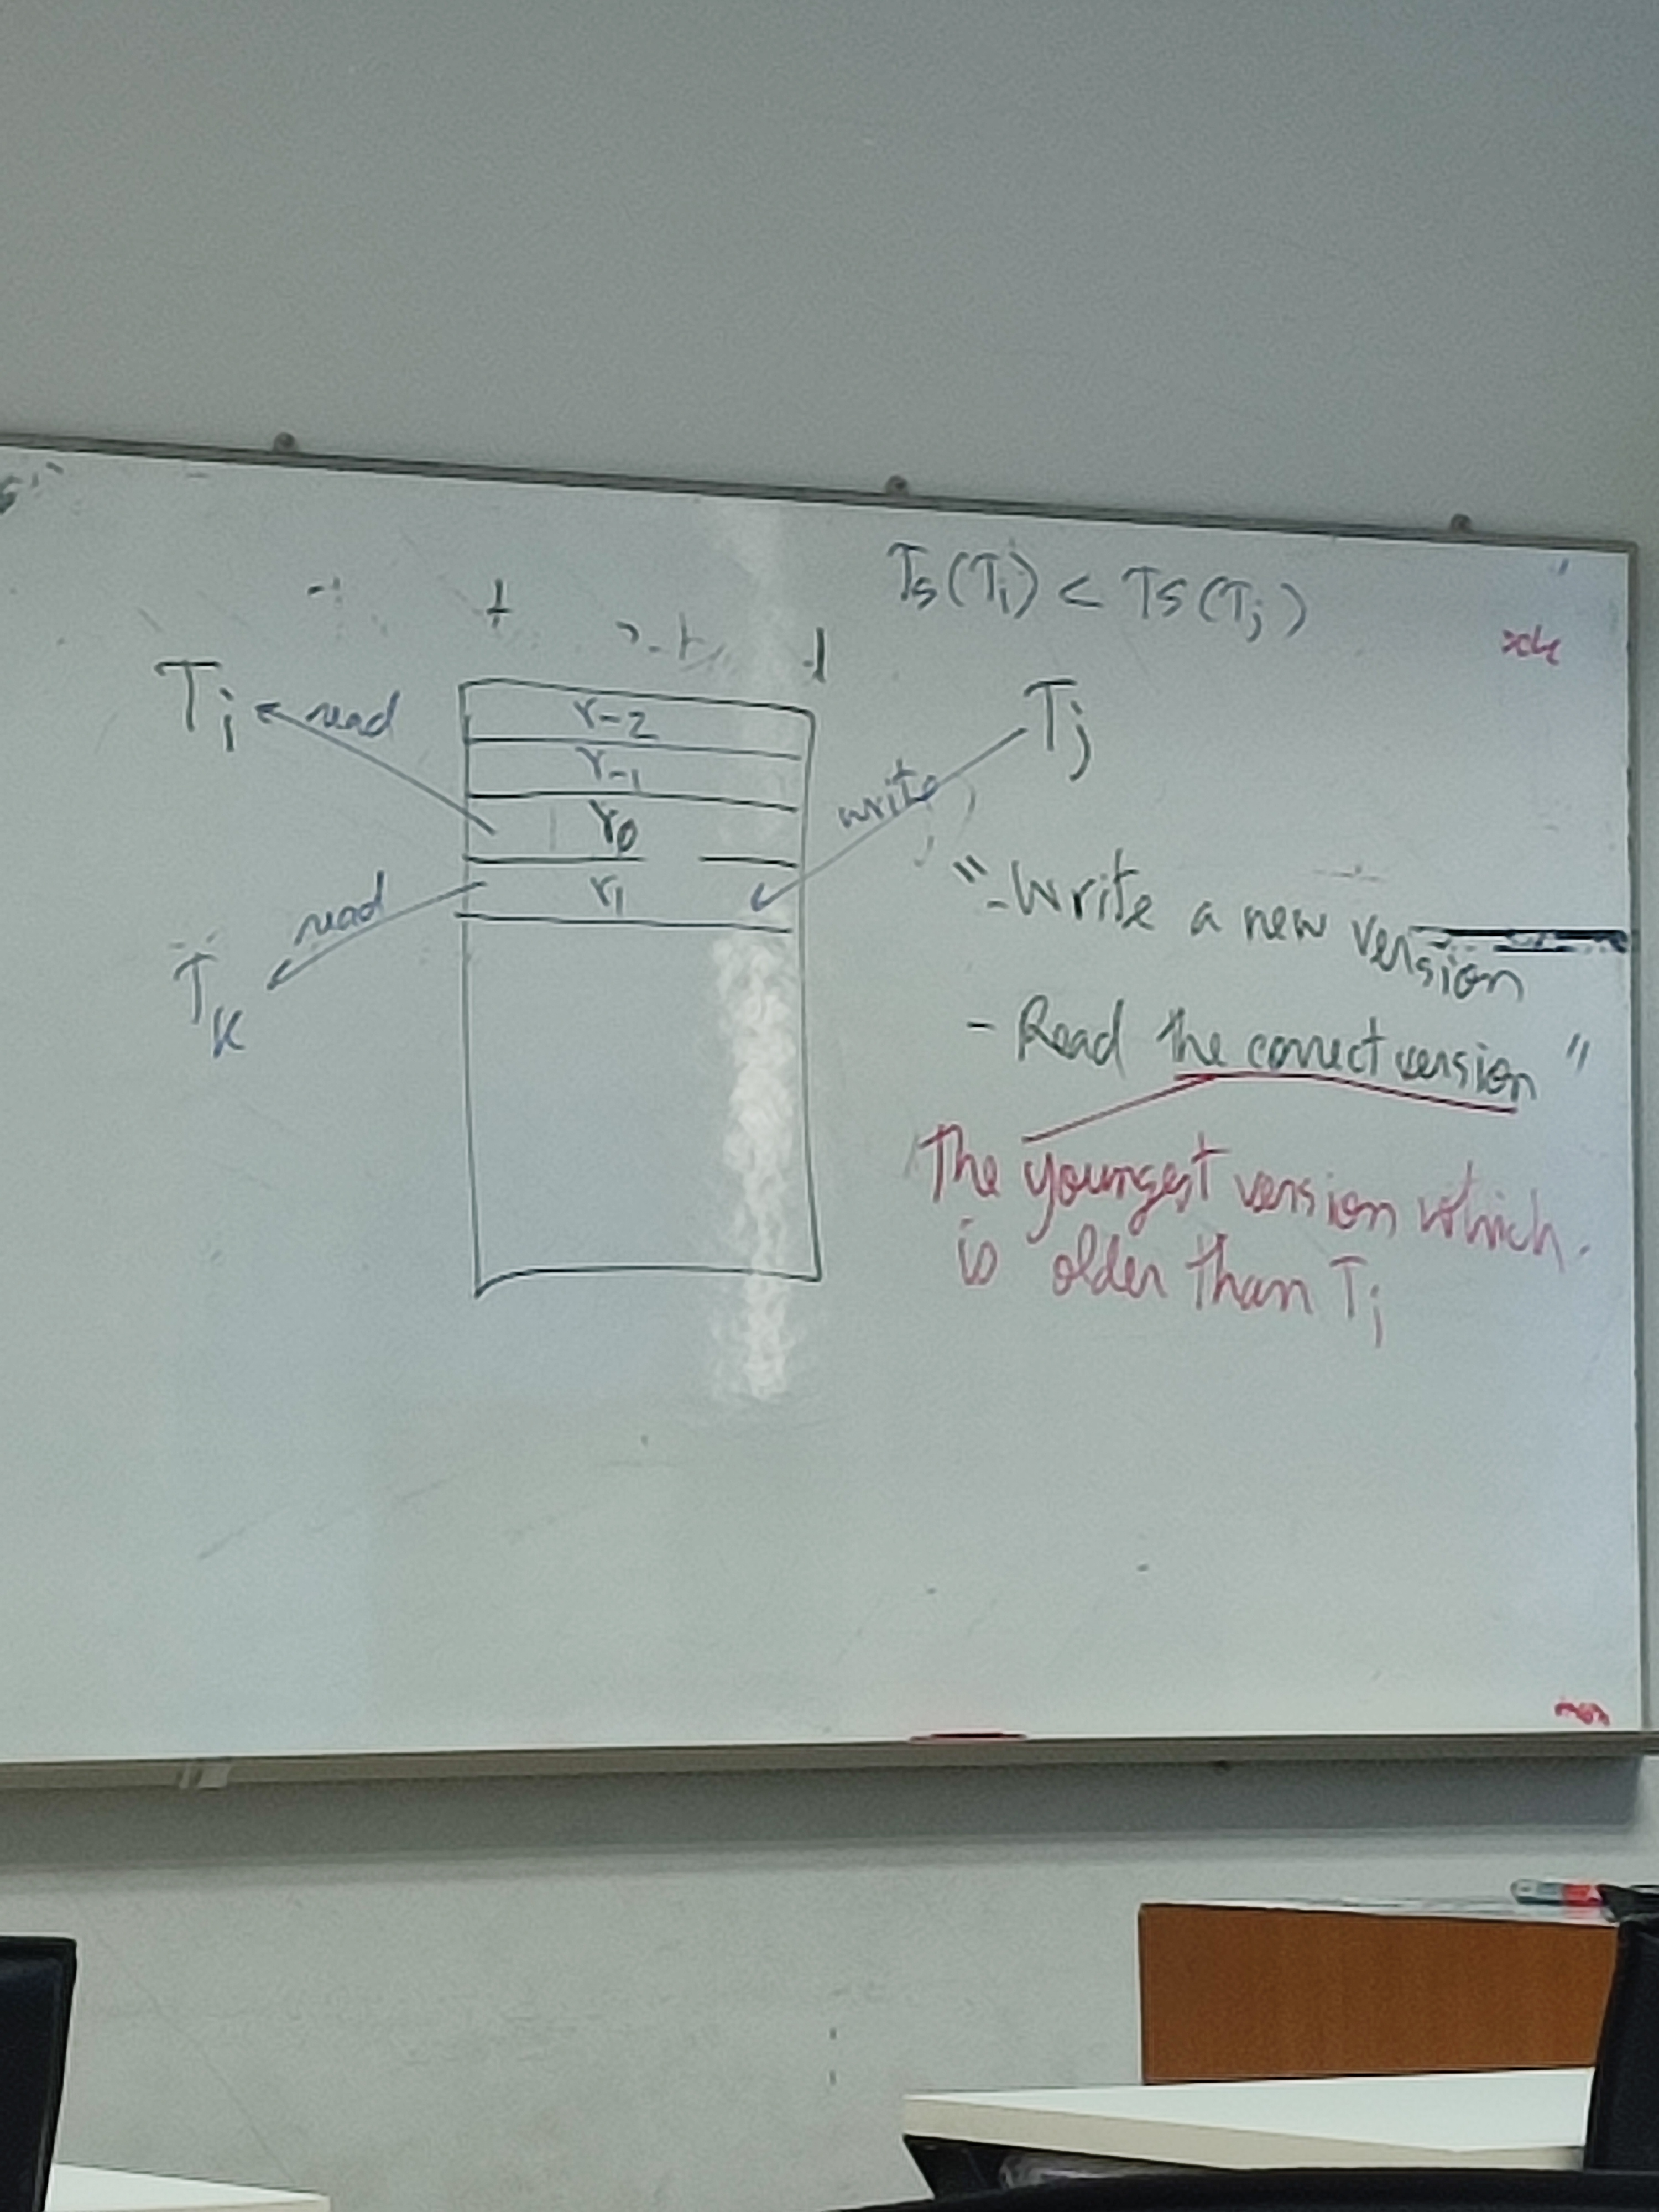 Ts(Ti) < Ts(Tj)
Ti
read
r-2
Tj
r-1
write
r0
r1
read
Tk
"- Write a new version
- Read the correct version "
The youngest version which
is older than Tj